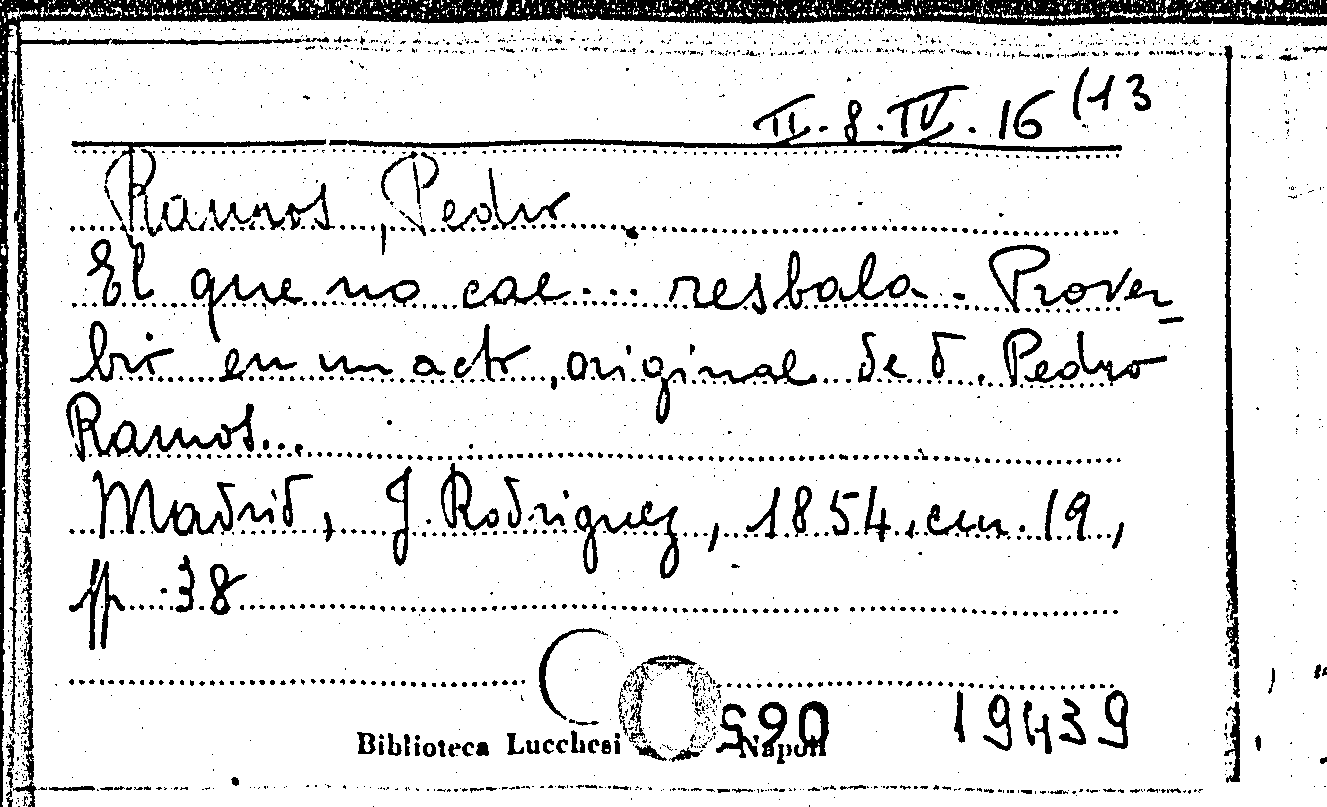 II. 8. IV. 16 (13
Ramos, Pedro
El que no cae... resbala. Prover-
bio en un acto, original de d. Pedro
Ramos...
Madrid, J. Rodriguez, 1854, cm. 19,
pp. 38
590 19439
Biblioteca Lucchesi Napoli